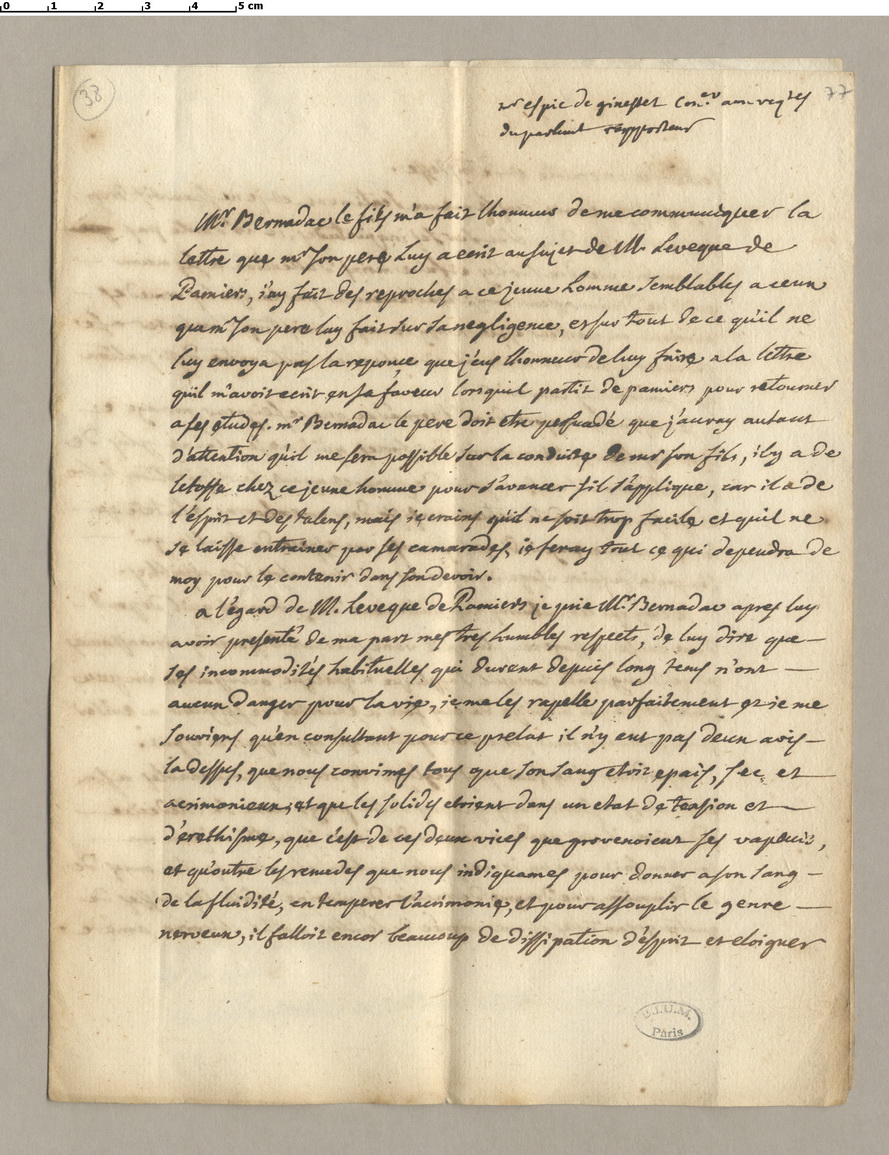 0 1 2 3 4 5 cm
38
77
mr espic de ginestet Con.er aux reqtes
du parlemt rapporteur
Mr. Bernadac le fils m'a fait lhonneur de me communiquer la
lettre que mr son pere Luy a ecrit au sujet de M. Leveque de
Pamiers, i'ay fait des reproches a ce jeune homme semblables a ceux
qua mr son pere luy fait sur sa negligence, et sur tout de ce qu'il ne
luy envoya pas la reponce que j'eus lhonneur de luy faire a la lettre
quil m'avoit ecrit en sa faveur lorsquil partit de pamiers pour retourner
a ses etudes. mr Bernadac le pere doit etre persuadé que j'auray autant
d'attention qu'il me sera possible sur la conduite de mr son fils, il y a de
letoffe chez ce jeune homme pour s'avancer sil s'applique, car il a de
l'esprit et des talens, mais ie crains qu'il ne soit trop facile et quil ne
se laisse entrainer par ses camarades, ie feray tout ce qui dependra de
moy pour le contenir dans son devoir.
a l'égard de M. Leveque de Pamiers je prie Mr. Bernadac apres luy
avoir presenté de ma part mes tres humbles respects, de luy dire que
ses incommodités habituelles qui durent depuis long tems n'ont
aucun danger pour la vie, ie me les rapelle parfaitement et ie me
souviens qu'en consultant pour ce prelat il n'y eut pas deux avis
la dessus, que nous convinmes tous que son sang etoit epais, sec et
acrimonieux, et que les solides etoient dans un etat de tension et
d'erethisme, que c'est de ces deux vices que provenoient ses vapeurs,
et qu'outre les remedes que nous indiquames pour donner a son sang
de la fluidité, en temperer l'acrimonie, et pour assouplir le genre
nerveux, il falloit encor beaucoup de dissipation d'esprit et eloigner
B.I.U.M.
Paris